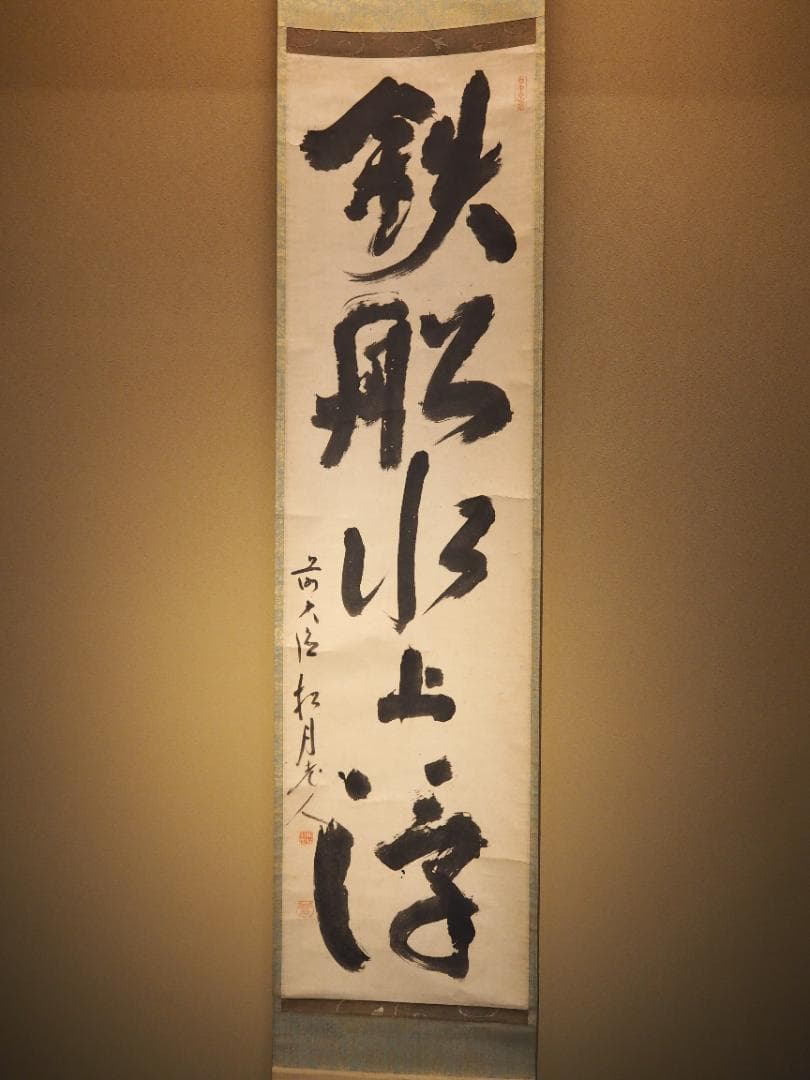 鉄船水上浮
前大徳松月老人